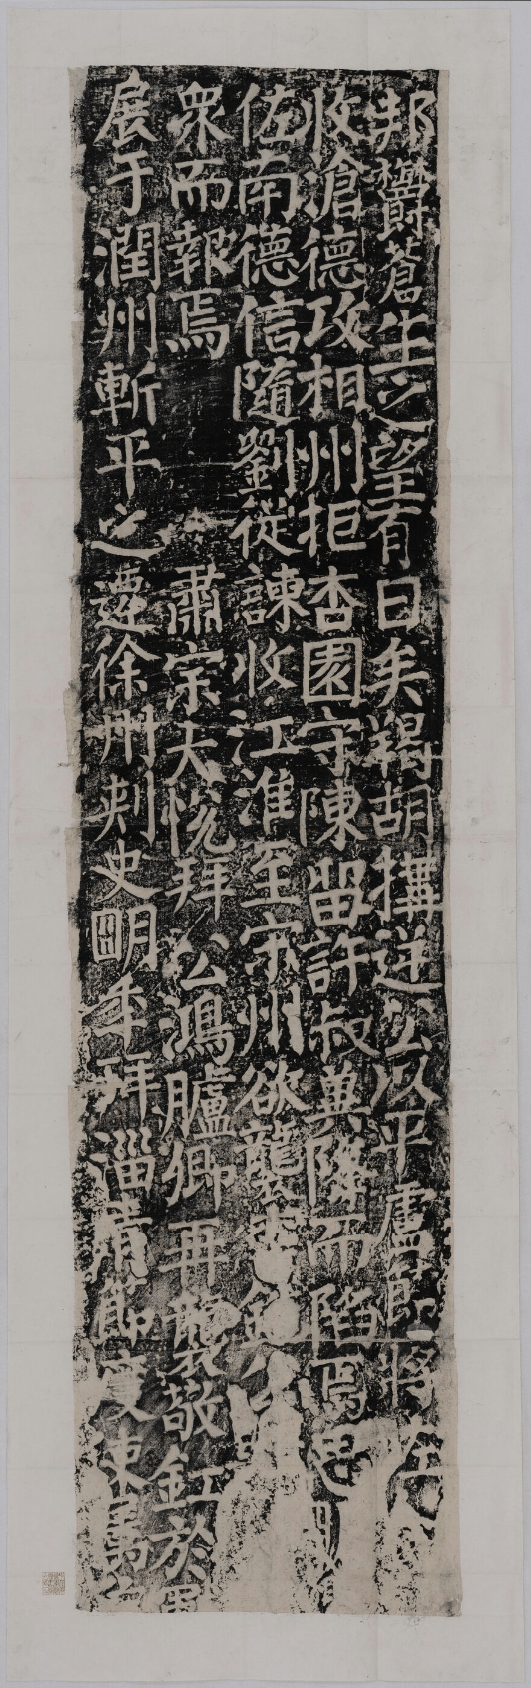 邦欝蒼生之望有日矣羯胡搆逆公以平盧節將佐
收滄德攻相州拒杏園守陳留許叔冀降而陷焉思明
佐南德信隨劉從諫收江淮至宋州欲襲李銑公
眾而報焉 肅宗大悅拜公鴻臚卿再襲敬釭於
展于潤州斬平之遷徐州刺史明年拜淄青節度東